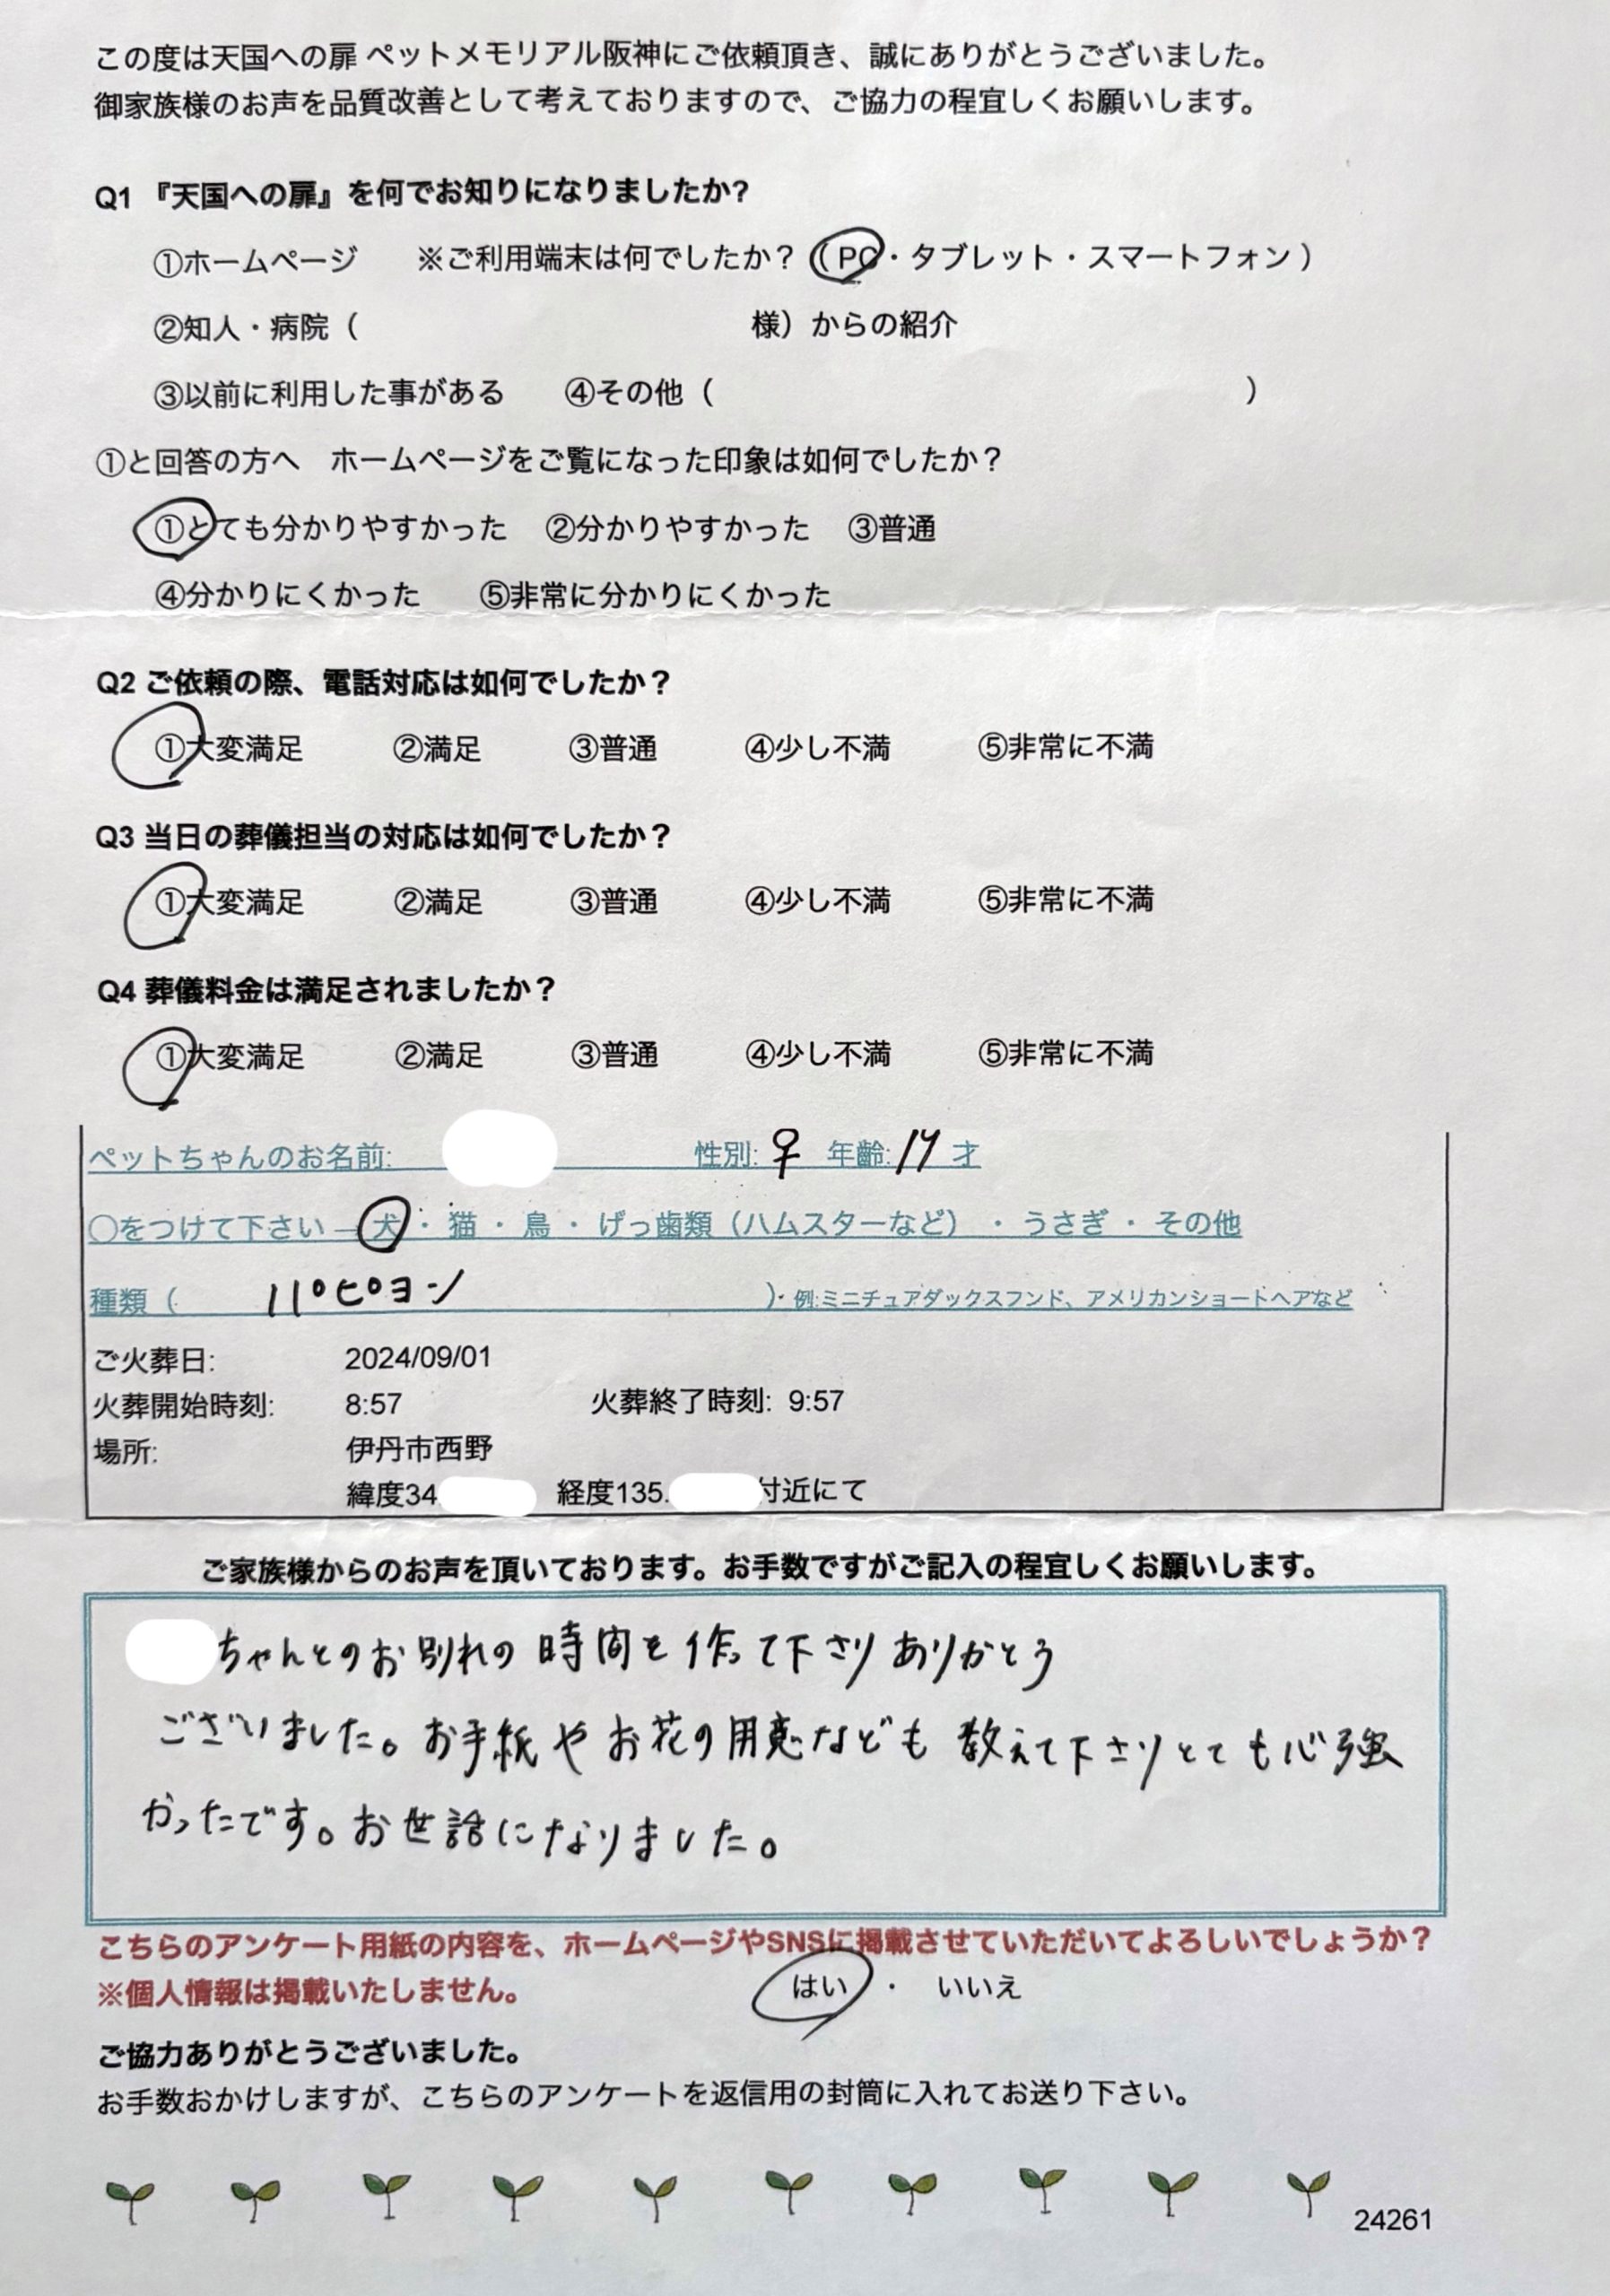 この度は天国への扉 ペットメモリアル阪神にご依頼頂き、誠にありがとうございました。
御家族様のお声を品質改善として考えておりますので、ご協力の程宜しくお願いします。
Q1 『天国への扉』を何でお知りになりましたか?
①ホームページ ※ご利用端末は何でしたか？（PC・タブレット・スマートフォン）
②知人・病院（ 様）からの紹介
③以前に利用した事がある ④その他（ ）
①と回答の方へ ホームページをご覧になった印象は如何でしたか？
①とても分かりやすかった ②分かりやすかった ③普通
④分かりにくかった ⑤非常に分かりにくかった
Q2 ご依頼の際、電話対応は如何でしたか？
①大変満足 ②満足 ③普通 ④少し不満 ⑤非常に不満
Q3 当日の葬儀担当の対応は如何でしたか？
①大変満足 ②満足 ③普通 ④少し不満 ⑤非常に不満
Q4 葬儀料金は満足されましたか？
①大変満足 ②満足 ③普通 ④少し不満 ⑤非常に不満
ペットちゃんのお名前: 性別:♀ 年齢: 才
〇をつけて下さい→犬・猫・鳥・げっ歯類（ハムスターなど）・うさぎ・その他
種類（ パピヨン ）例:ミニチュアダックスフンド、アメリカンショートヘアなど
ご火葬日: 2024/09/01
火葬開始時刻: 8:57 火葬終了時刻: 9:57
場所: 伊丹市西野
緯度34 経度135. 付近にて
ご家族様からのお声を頂いております。お手数ですがご記入の程宜しくお願いします。
ちゃんとのお別れの時間を作って下さりありがとう
ございました。お手紙やお花の用意なども教えて下さりとても心強
かったです。お世話になりました。
こちらのアンケート用紙の内容を、ホームページやSNSに掲載させていただいてよろしいでしょうか？
※個人情報は掲載いたしません。 はい ・ いいえ
ご協力ありがとうございました。
お手数おかけしますが、こちらのアンケートを返信用の封筒に入れてお送り下さい。
24261